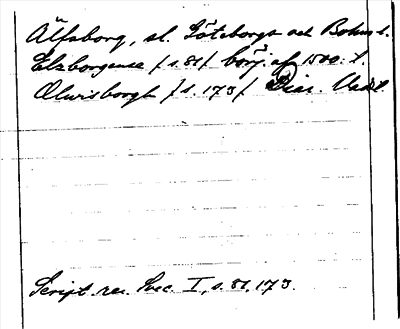 Älfsborg, sl. Göteborgs och Bohus l.
Elzborgense / s. 81 / börj. af 1500. t.
Elwisborgh / s. 173 / Diar. Vadst.
Script. rer. Svec. I, s. 81, 173.